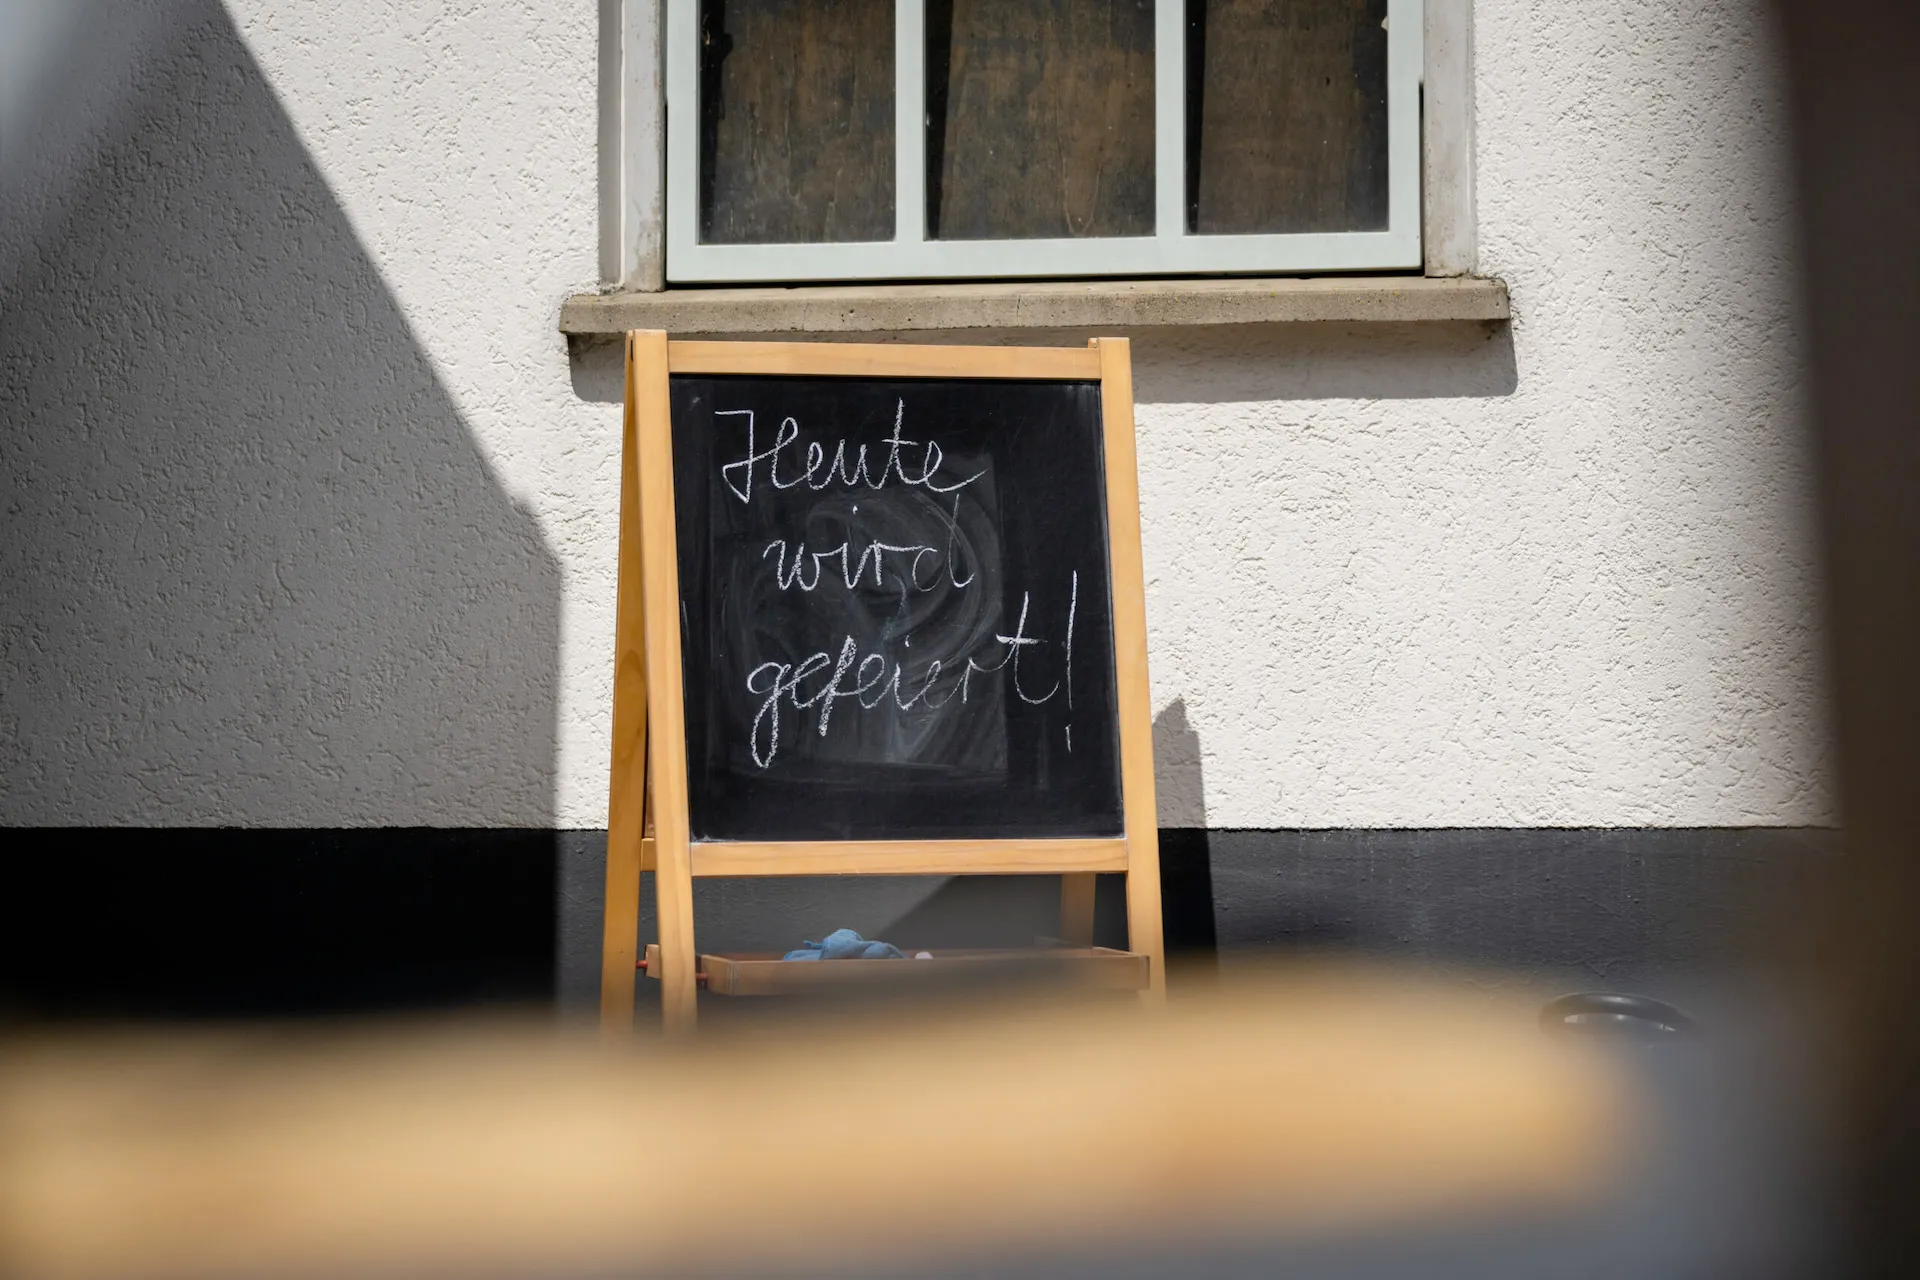 Heute
wird
gefeiert!